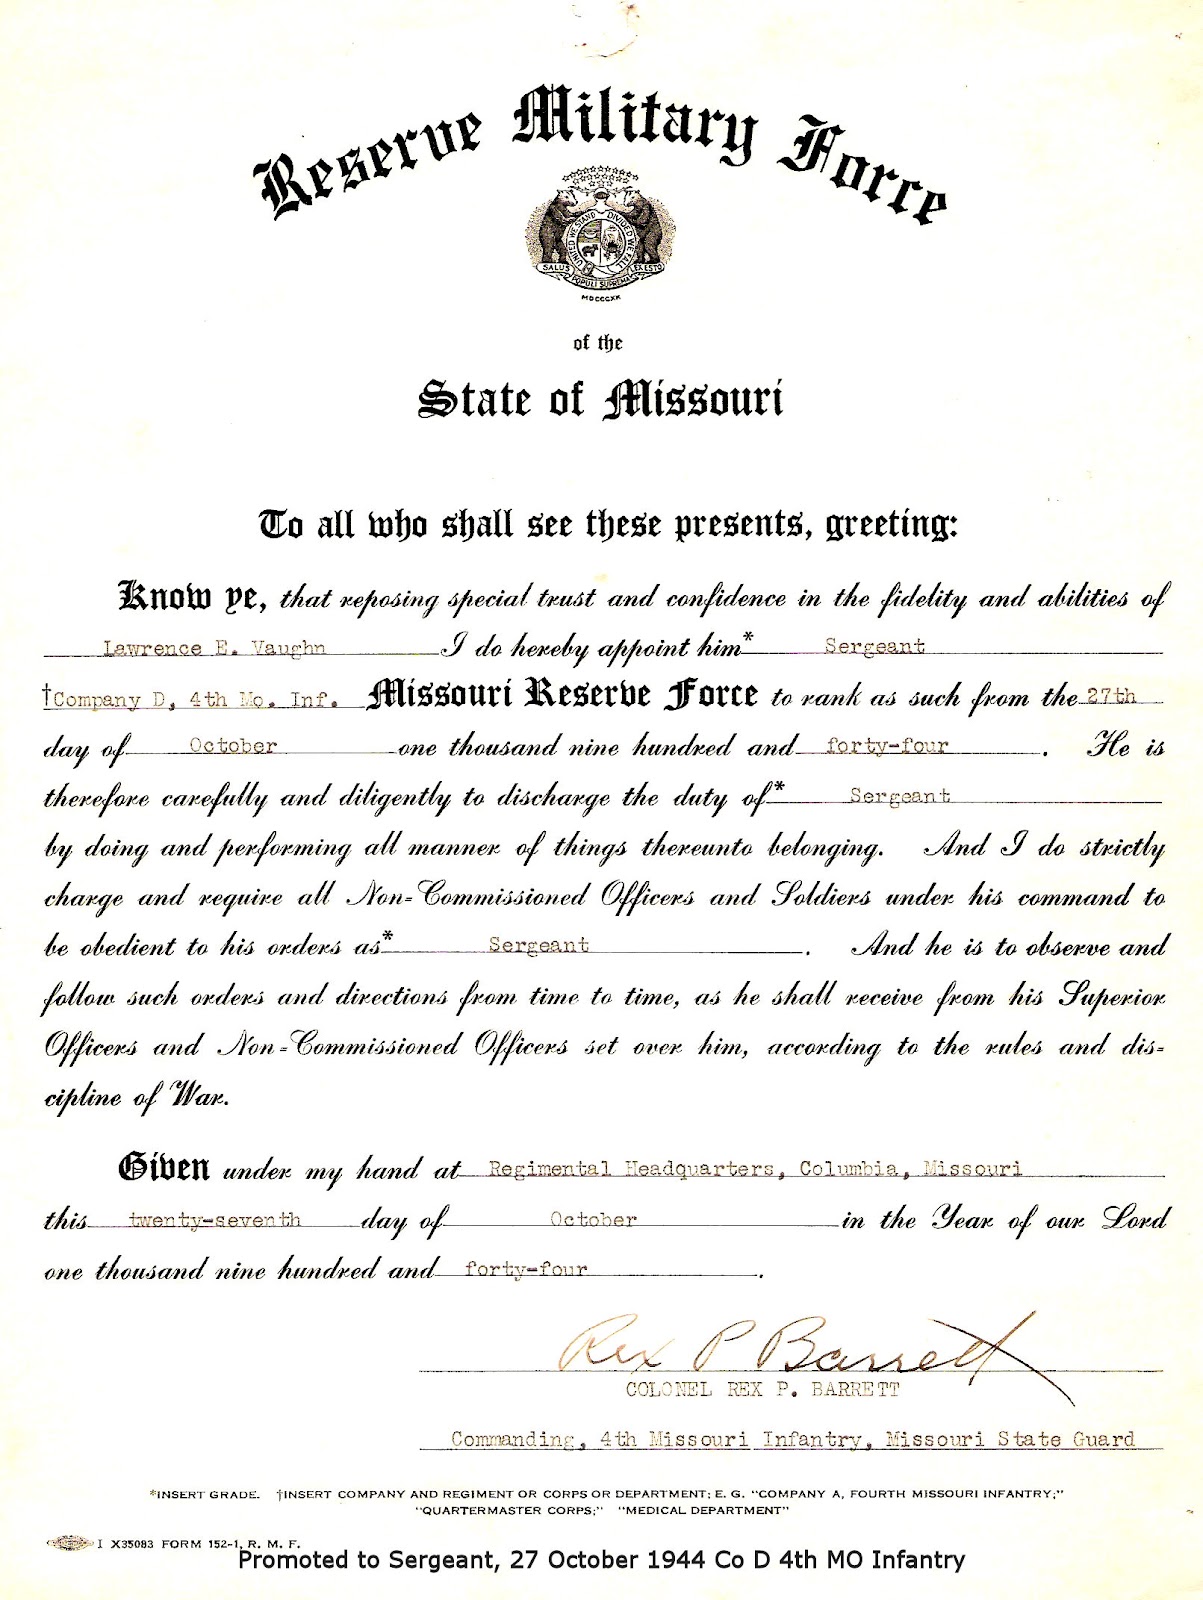 Reserve Military Force
UNITED WE STAND DIVIDED WE FALL
SALUS POPULI SUPREMA LEX ESTO
MDCCCXX
of the
State of Missouri
To all who shall see these presents, greeting:
Know ye, that reposing special trust and confidence in the fidelity and abilities of
Lawrence E. Vaughn I do hereby appoint him* Sergeant
†Company D, 4th Mo. Inf. Missouri Reserve Force to rank as such from the 27th
day of October one thousand nine hundred and forty-four. He is
therefore carefully and diligently to discharge the duty of* Sergeant
by doing and performing all manner of things thereunto belonging. And I do strictly
charge and require all Non-Commissioned Officers and Soldiers under his command to
be obedient to his orders as* Sergeant. And he is to observe and
follow such orders and directions from time to time, as he shall receive from his Superior
Officers and Non-Commissioned Officers set over him, according to the rules and dis-
cipline of War.
Given under my hand at Regimental Headquarters, Columbia, Missouri
this twenty-seventh day of October in the Year of our Lord
one thousand nine hundred and forty-four.
Rex P Barrett
COLONEL REX P. BARRETT
Commanding, 4th Missouri Infantry, Missouri State Guard
*INSERT GRADE. †INSERT COMPANY AND REGIMENT OR CORPS OR DEPARTMENT; E. G. "COMPANY A, FOURTH MISSOURI INFANTRY;"
"QUARTERMASTER CORPS;" "MEDICAL DEPARTMENT"
I X35083 FORM 152-1, R. M. F.
Promoted to Sergeant, 27 October 1944 Co D 4th MO Infantry